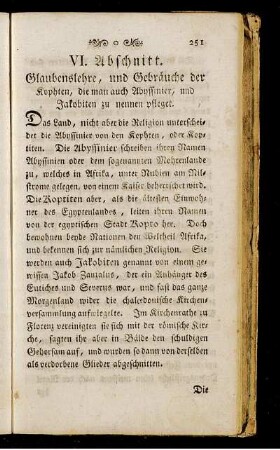 251
VI. Abschnitt.
Glaubenslehre, und Gebräuche der
Kophten, die man auch Abyssinier, und
Jakobiten zu nennen pfleget.
Das Land, nicht aber die Religion unterschei-
det die Abyssinier von den Kophten, oder Kop-
titen. Die Abyssinier schreiben ihren Namen
Abyssinien oder dem sogenannten Mohrenlande
zu, welches in Afrika, unter Nubien am Nil-
strome gelegen, von einem Kaiser beherrschet wird.
Die Koptiten aber, als die ältesten Einwoh-
ner des Egyptenlandes, leiten ihren Namen
von der egyptischen Stadt Kopto her. Doch
bewohnen beyde Nationen den Weltheil Afrika,
und bekennen sich zur nämlichen Religion. Sie
werden auch Jakobiten genannt von einem ge-
wissen Jakob Zanzalus, der ein Anhänger des
Eutiches und Severus war, und fast das ganze
Morgenland wider die chaledonische Kirchen-
versammlung aufwiegelte. Im Kirchenrathe zu
Florenz vereinigten sie sich mit der römische Kir-
che, sagten ihr aber in Bälde den schuldigen
Gehorsam auf, und wurden so dann von derselben
als verdorbene Glieder abgeschnitten.
Die